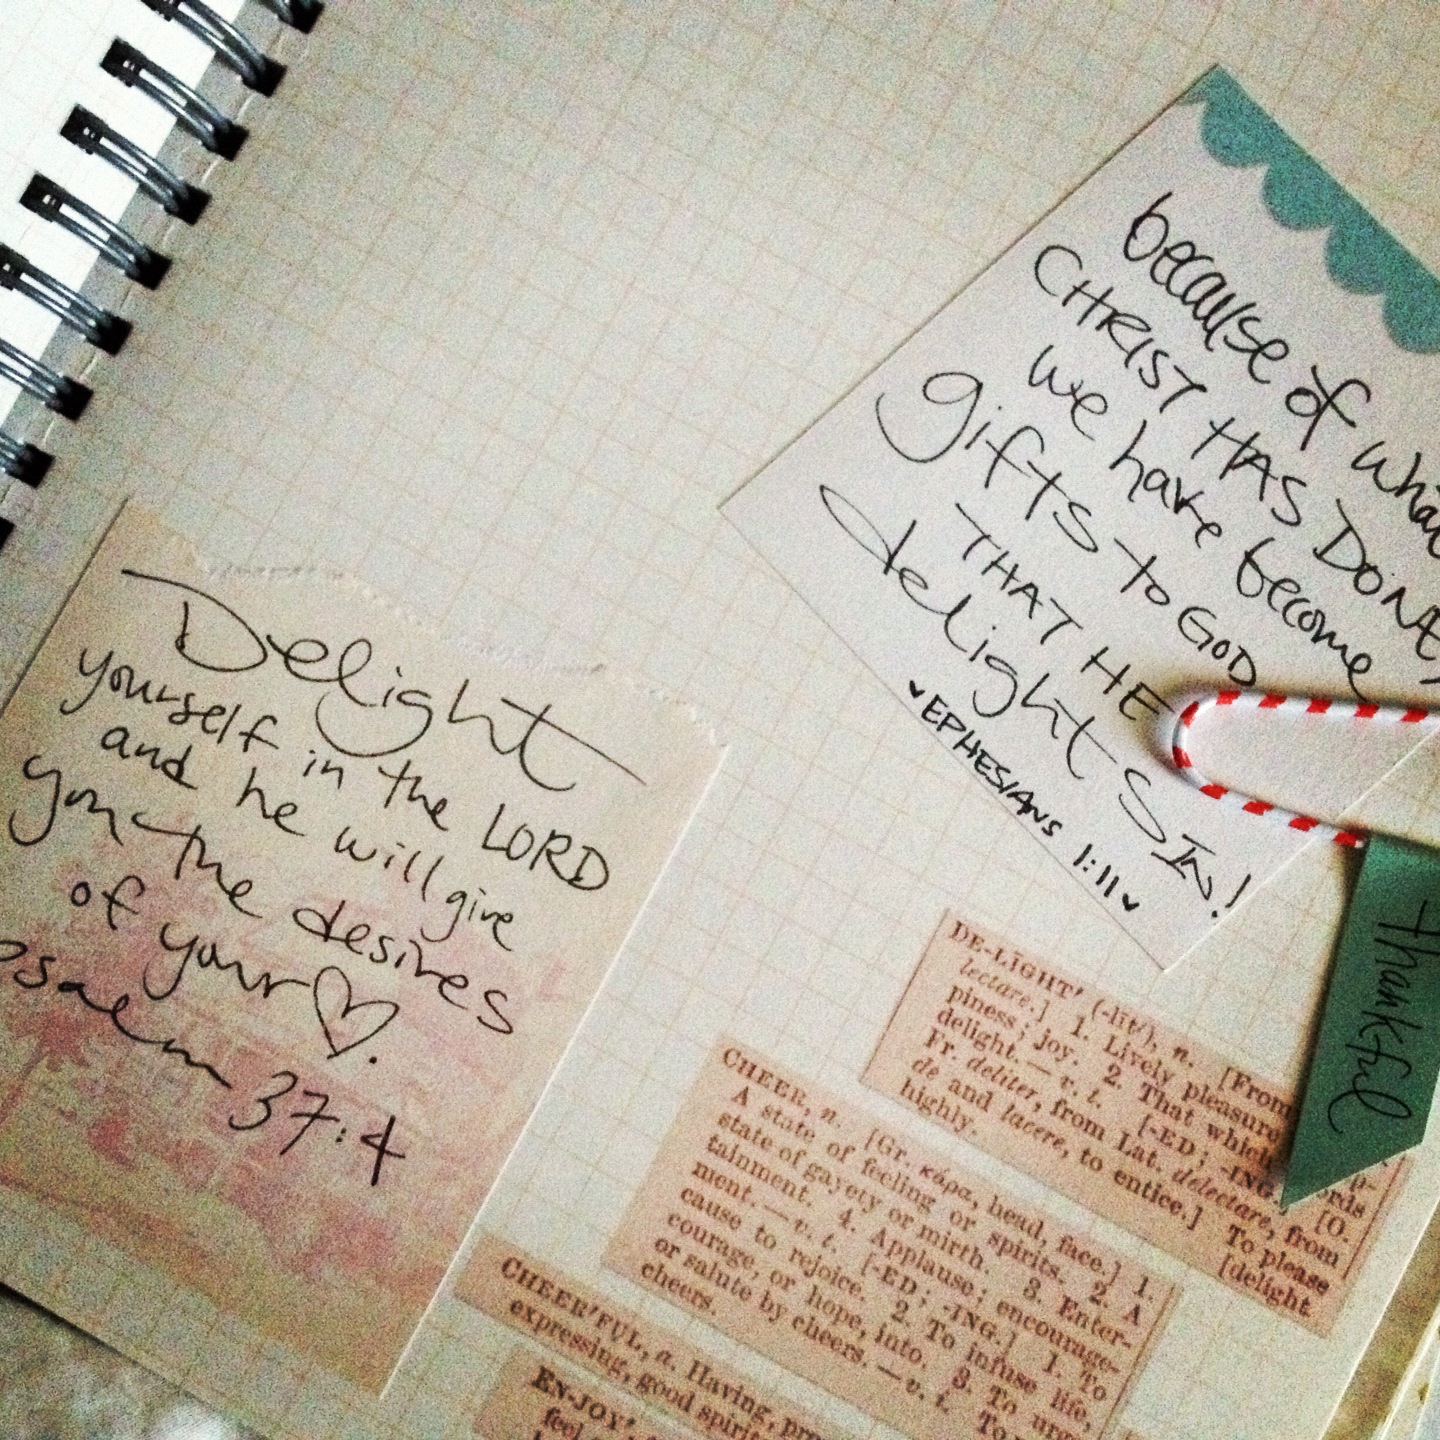 Delight
yourself in the LORD
and he will give
you the desires
of your ♡.
psalm 37:4
because of what
CHRIST HAS DONE,
we have become
gifts to GOD
THAT HE
delights IN!
♥ EPHESIANS 1:11 ♥
thankful
DE-LIGHT' (-līt'), n. [From
lectare.] 1. Lively pleasure
piness; joy. 2. That which
delight. — v. t. [-ED; -ING.] [O.
Fr. deliter, from Lat. delectare, from
de and lacere, to entice.] To please
highly. [delight.
CHEER, n. [Gr. κάρα, head, face.] 1.
A state of feeling or spirits. 2. A
state of gayety or mirth. 3. Enter-
tainment. 4. Applause; encourage-
ment. — v. t. [-ED; -ING.] 1. To
cause to rejoice. 2. To infuse life,
courage, or hope, into. 3. To
or salute by cheers. — v. t. To
cheers.
CHEER'FUL, a. Having,
expressing, good
EN-JOY',
feel